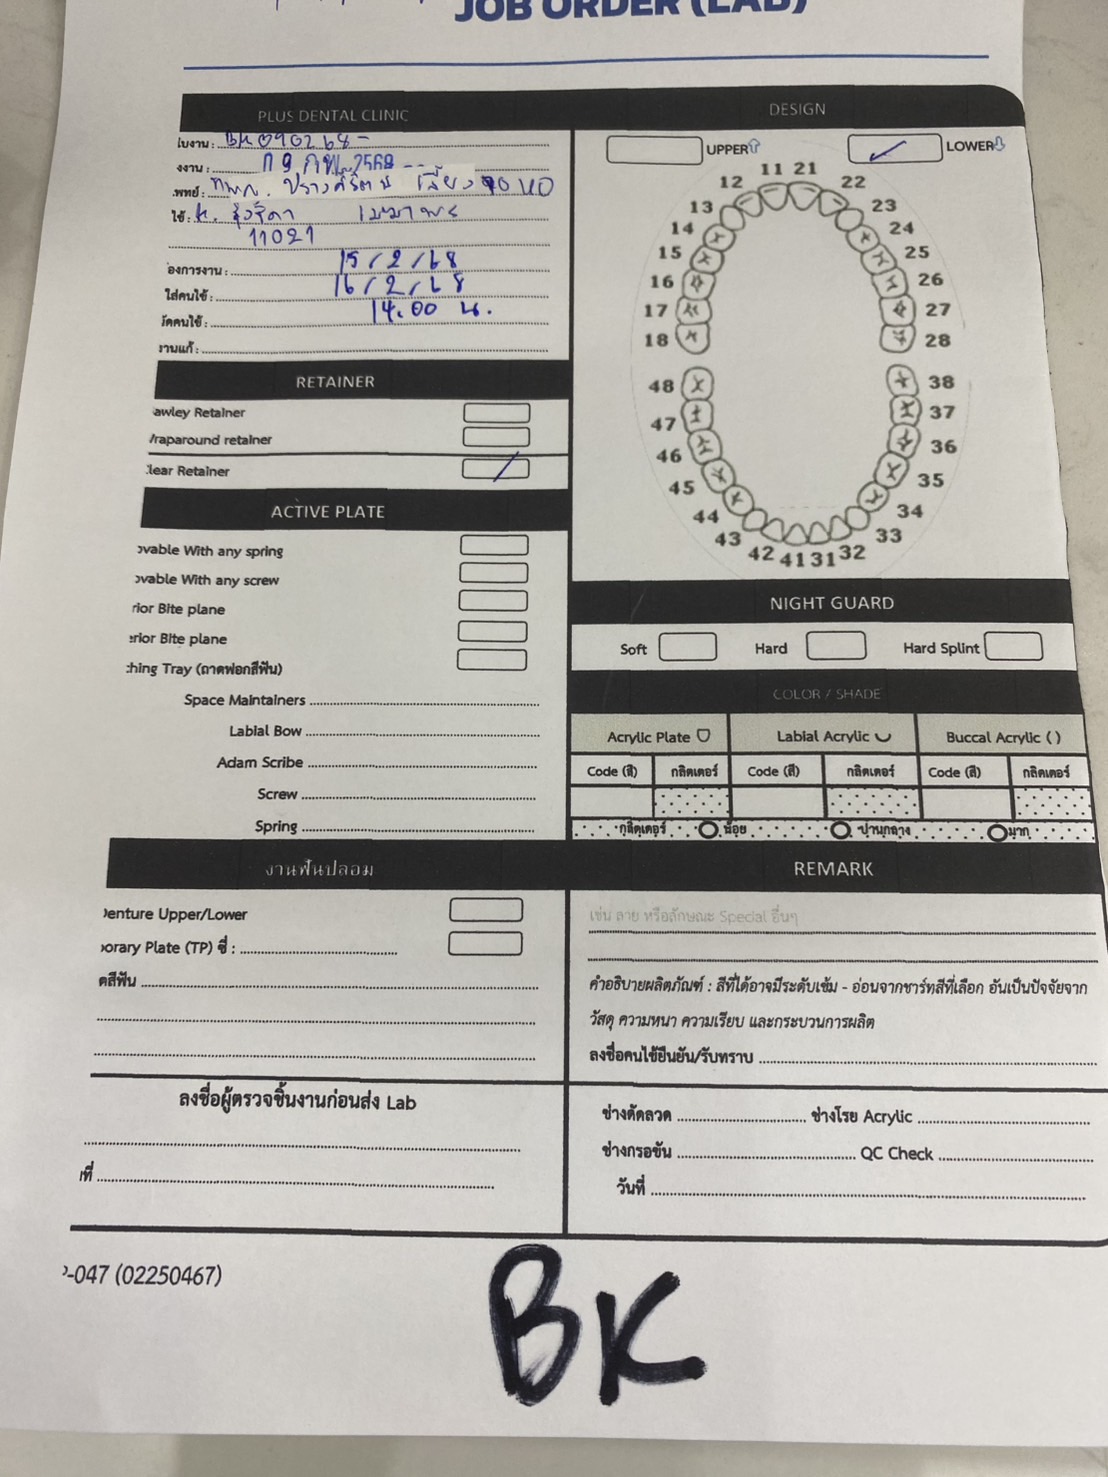 JOB ORDER (LAB)
PLUS DENTAL CLINIC
ใบงาน : BK 090268 -
งงาน : 09 ก.พ. 2568 --
พทย์ : ทพญ.
ใช้ : K.
11021
องการงาน : 15/2/68
ใส่คนไข้ : 16/2/68
ัดคนไข้ : 14.00 น.
งานแก้ :
RETAINER
awley Retainer
raparound retainer
lear Retainer
ACTIVE PLATE
ovable With any spring
ovable With any screw
rior Bite plane
erior Bite plane
ching Tray (ถาดฟอกสีฟัน)
Space Maintainers
Labial Bow
Adam Scribe
Screw
Spring
DESIGN
UPPER
LOWER
11 21
12 22
13 23
14 24
15 25
16 26
17 27
18 28
48 38
47 37
46 36
45 35
44 34
43 33
42 41 31 32
NIGHT GUARD
Soft Hard Hard Splint
COLOR / SHADE
Acrylic Plate Labial Acrylic Buccal Acrylic ( )
Code (สี) กลิตเตอร์ Code (สี) กลิตเตอร์ Code (สี) กลิตเตอร์
กลิตเตอร์ น้อย ปานกลาง มาก
งานฟันปลอม
Denture Upper/Lower
orary Plate (TP) ซี่ :
ดสีฟัน
REMARK
เช่น ลาย หรือลักษณะ Special อื่นๆ
คำอธิบายผลิตภัณฑ์ : สีที่ได้อาจมีระดับเข้ม - อ่อนจากชาร์ทสีที่เลือก อันเป็นปัจจัยจาก
วัสดุ ความหนา ความเรียบ และกระบวนการผลิต
ลงชื่อคนไข้ยืนยัน/รับทราบ
ลงชื่อผู้ตรวจชิ้นงานก่อนส่ง Lab
ที่
ช่างดัดลวด ช่างโรย Acrylic
ช่างกรอขัน QC Check
วันที่
-047 (02250467)
BK